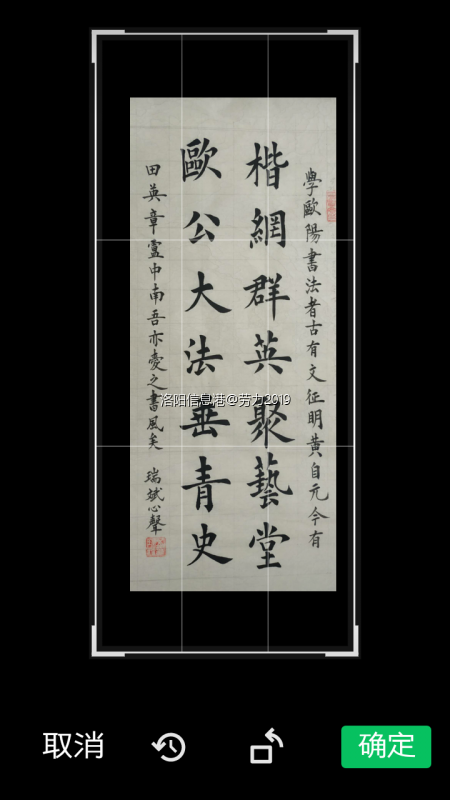 學歐陽書法者古有文征明黃自元今有
楷網群英聚藝堂
歐公大法垂青史
田英章盧中南吾亦愛之書風矣 瑞斌心聲
洛阳信息港@劳力2019
取消
确定